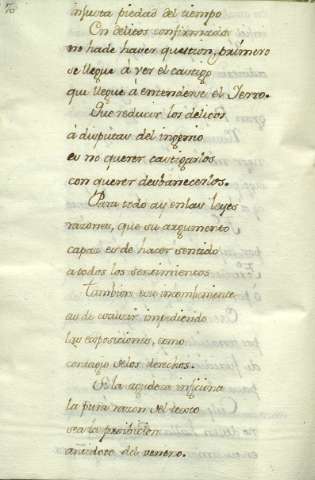 70
injusta piedad del tiempo
En delitos confirmados
no hade haver question, primero
se llegue á ver el castigo
que llegue á entenderse el Yerro.
Que reducir los delitos
á disputas del ingenio
es no querer castigarlos
con querer desbanecerlos.
Para todo ay en las leyes
razones, que su argumento
capaz es de hacer sentido
a todos los sentimientos
Tambien ese incombeniente
as de evitar impidiendo
las exposiciones, como
contagio de los derechos.
Si la agudeza inficiona
la pura razon del texto
sea la proibicion
antidoto del veneno.